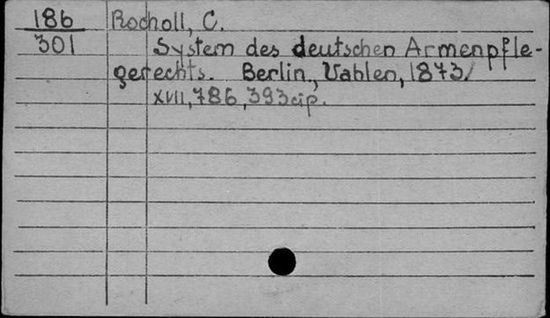 186 Rocholl, C.
301 System des deutschen Armenpfle-
gerechts. Berlin, Vahlen, 1873/
XVII, 786, 393 cip.